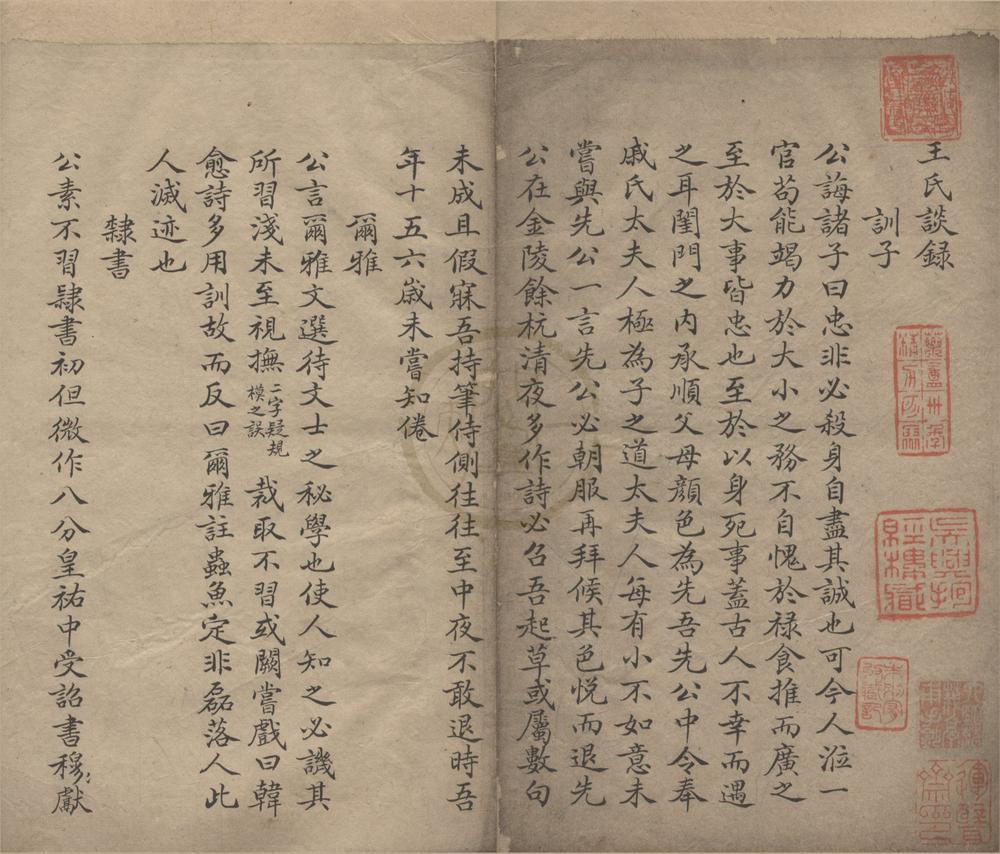 王氏談録
訓子
公誨諸子曰忠非必殺身自盡其誠也可今人涖一
官苟能竭力於大小之務不自愧於禄食推而廣之
至於大事皆忠也至於以身死事蓋古人不幸而遇
之耳閨門之内承順父母顔色為先吾先公中令奉
戚氏太夫人極為子之道太夫人每有小不如意未
嘗與先公一言先公必朝服再拜候其色悦而退先
公在金陵餘杭清夜多作詩必召吾起草或屬數句
未成且假寐吾持筆侍側往往至中夜不敢退時吾
年十五六歳未嘗知倦
爾雅
公言爾雅文選待文士之秘學也使人知之必譏其
所習淺未至視撫二字疑規模之誤 裁取不習或闕嘗戲曰韓
愈詩多用訓故而反曰爾雅註蟲魚定非磊落人此
人滅迹也
隸書
公素不習隸書初但微作八分皇祐中受詔書穆〻獻